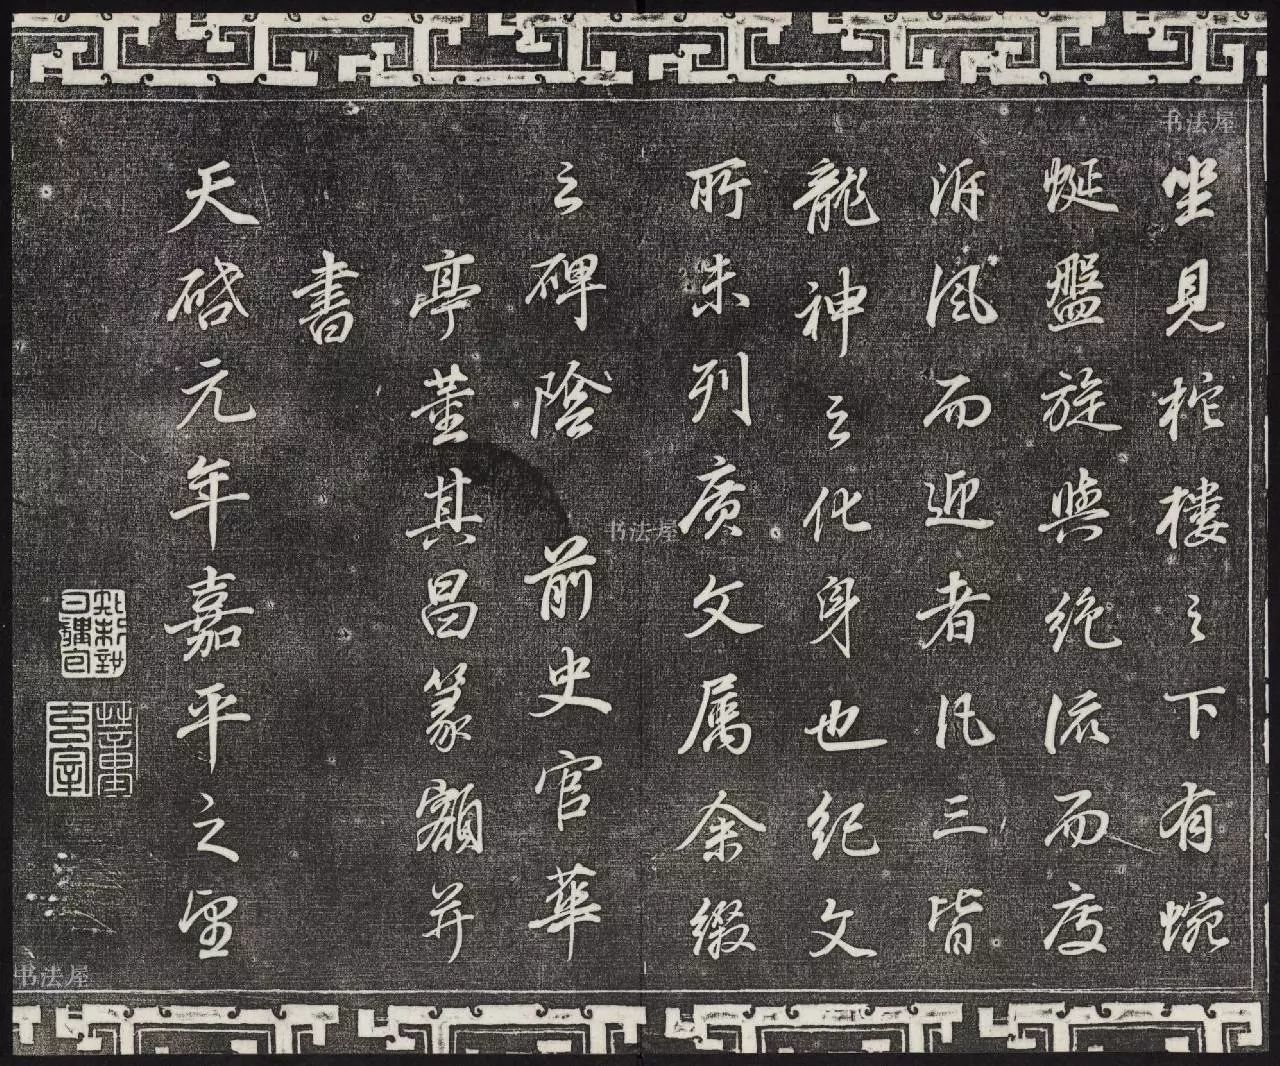 坐見柁樓之下有蜿
蜒盤旋與絶流而度
泝風而迎者凡三皆
龍神之化身也紀文
所未列廣文属余綴
之碑陰 前史官華
亭董其昌篆額并
書
天啓元年嘉平之望
书法屋
书法屋
书法屋